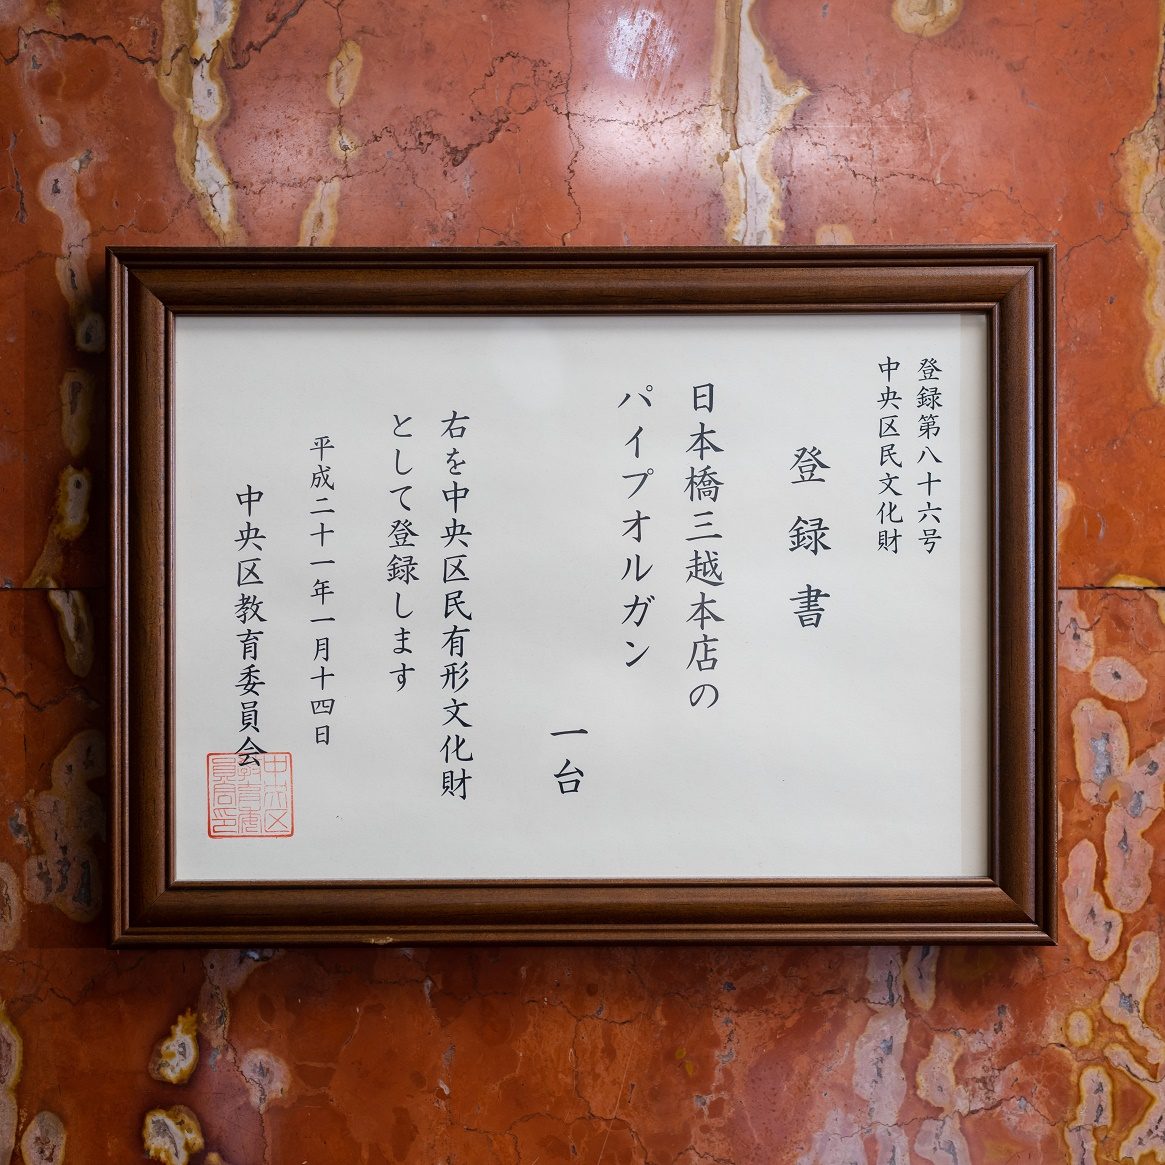 登録第八十六号
中央区民文化財
登録書
日本橋三越本店の
パイプオルガン
一台
右を中央区民有形文化財
として登録します
平成二十一年一月十四日
中央区教育委員会
中央区
教育委
員会印